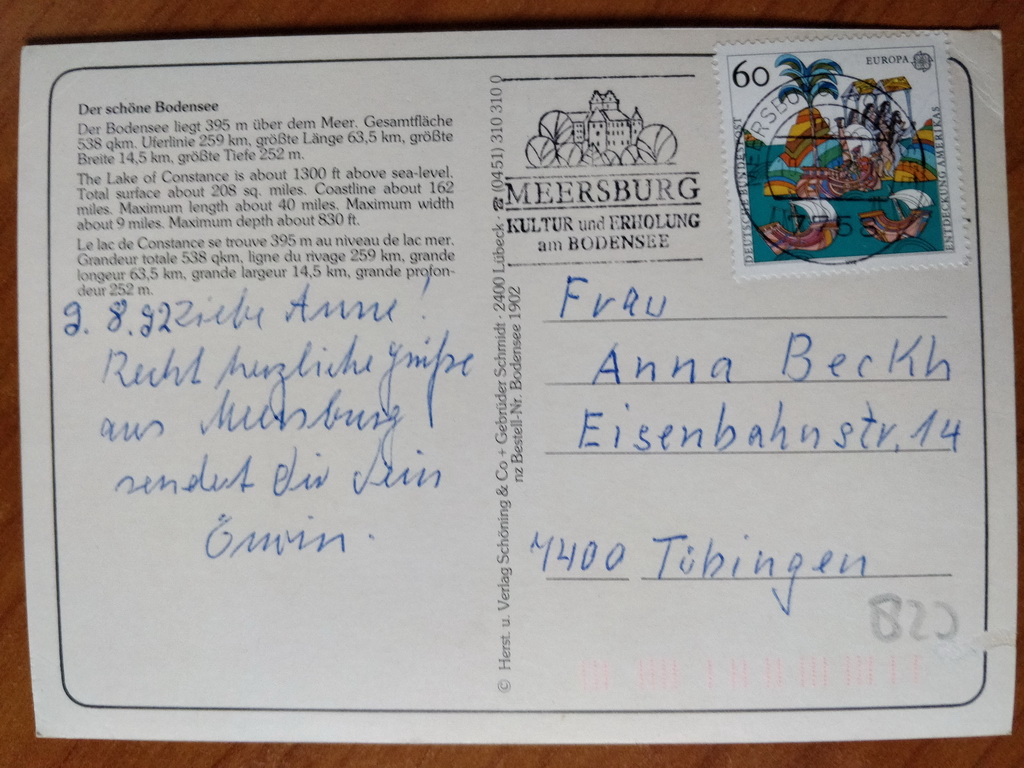 Der schöne Bodensee
Der Bodensee liegt 395 m über dem Meer. Gesamtfläche
538 qkm. Uferlinie 259 km, größte Länge 63,5 km, größte
Breite 14,5 km, größte Tiefe 252 m.
The Lake of Constance is about 1300 ft above sea-level.
Total surface about 208 sq. miles. Coastline about 162
miles. Maximum length about 40 miles. Maximum width
about 9 miles. Maximum depth about 830 ft.
Le lac de Constance se trouve 395 m au niveau de lac mer.
Grandeur totale 538 qkm, ligne du rivage 259 km, grande
longeur 63,5 km, grande largeur 14,5 km, grande profon-
deur 252 m.
9. 8. 92 Liebe Anne!
Recht herzliche Grüße
aus Meersburg
sendet Dir Dein
Erwin.
© Herst. u. Verlag Schöning & Co + Gebrüder Schmidt · 2400 Lübeck · ☎ (04 51) 310 310 0
nz Bestell-Nr. Bodensee 1902
MEERSBURG
KULTUR und ERHOLUNG
am BODENSEE
60
EUROPA
DEUTSCHE BUNDESPOST
ENTDECKUNG AMERIKAS
MEERSBURG
7758
Frau
Anna Beckh
Eisenbahnstr. 14
7400 Tübingen